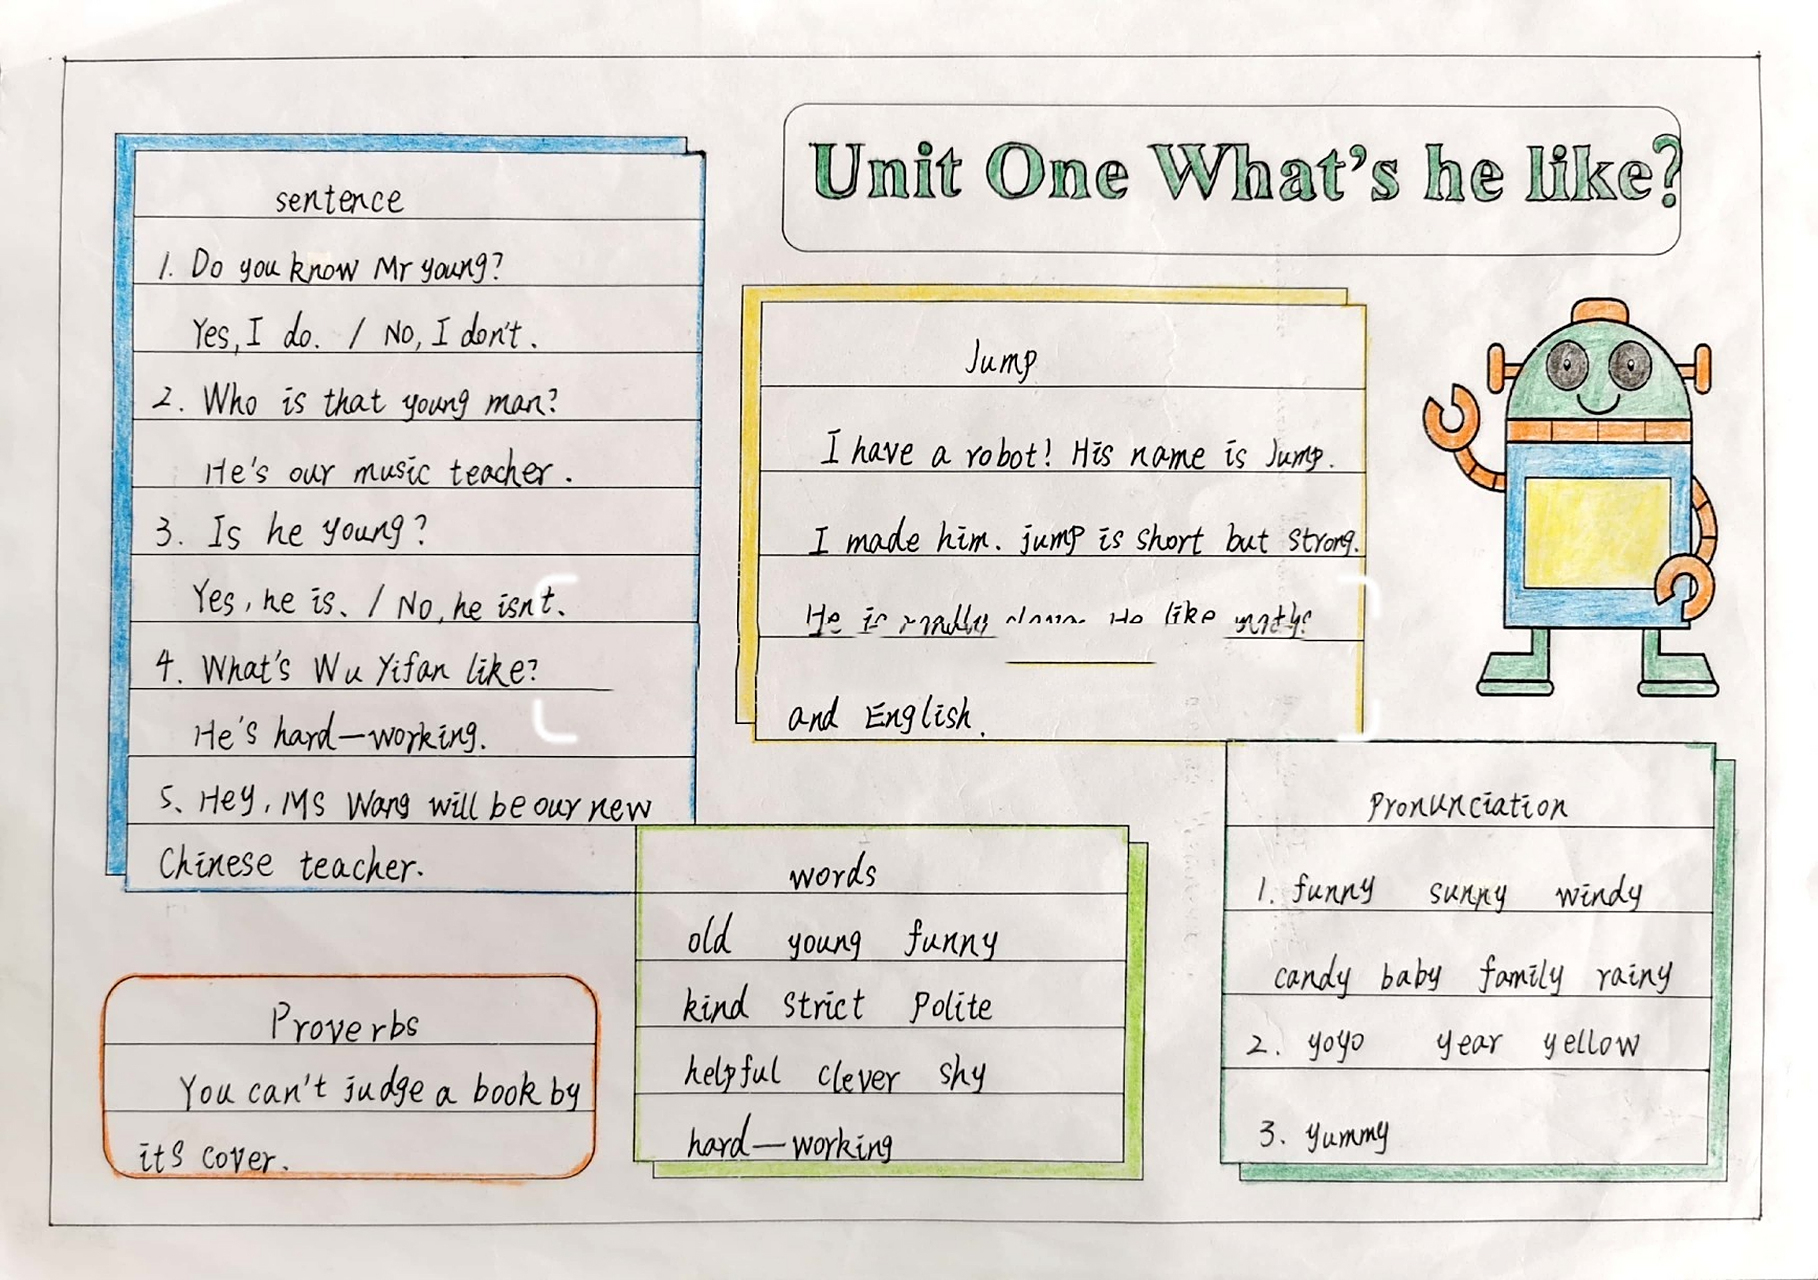 Unit One What's he like?
sentence
1. Do you know Mr young?
Yes, I do. / No, I don't.
2. Who is that young man?
He's our music teacher.
3. Is he young?
Yes, he is. / No, he isn't.
4. What's Wu Yifan like?
He's hard—working.
5. Hey, Ms Wang will be our new
Chinese teacher.
Jump
I have a robot! His name is Jump.
I made him. jump is short but strong.
He is like
and English.
Pronunciation
1. funny sunny windy
candy baby family rainy
2. yoyo year yellow
3. yummy
words
old young funny
kind strict polite
helpful clever shy
hard—working
Proverbs
You can't judge a book by
its cover.